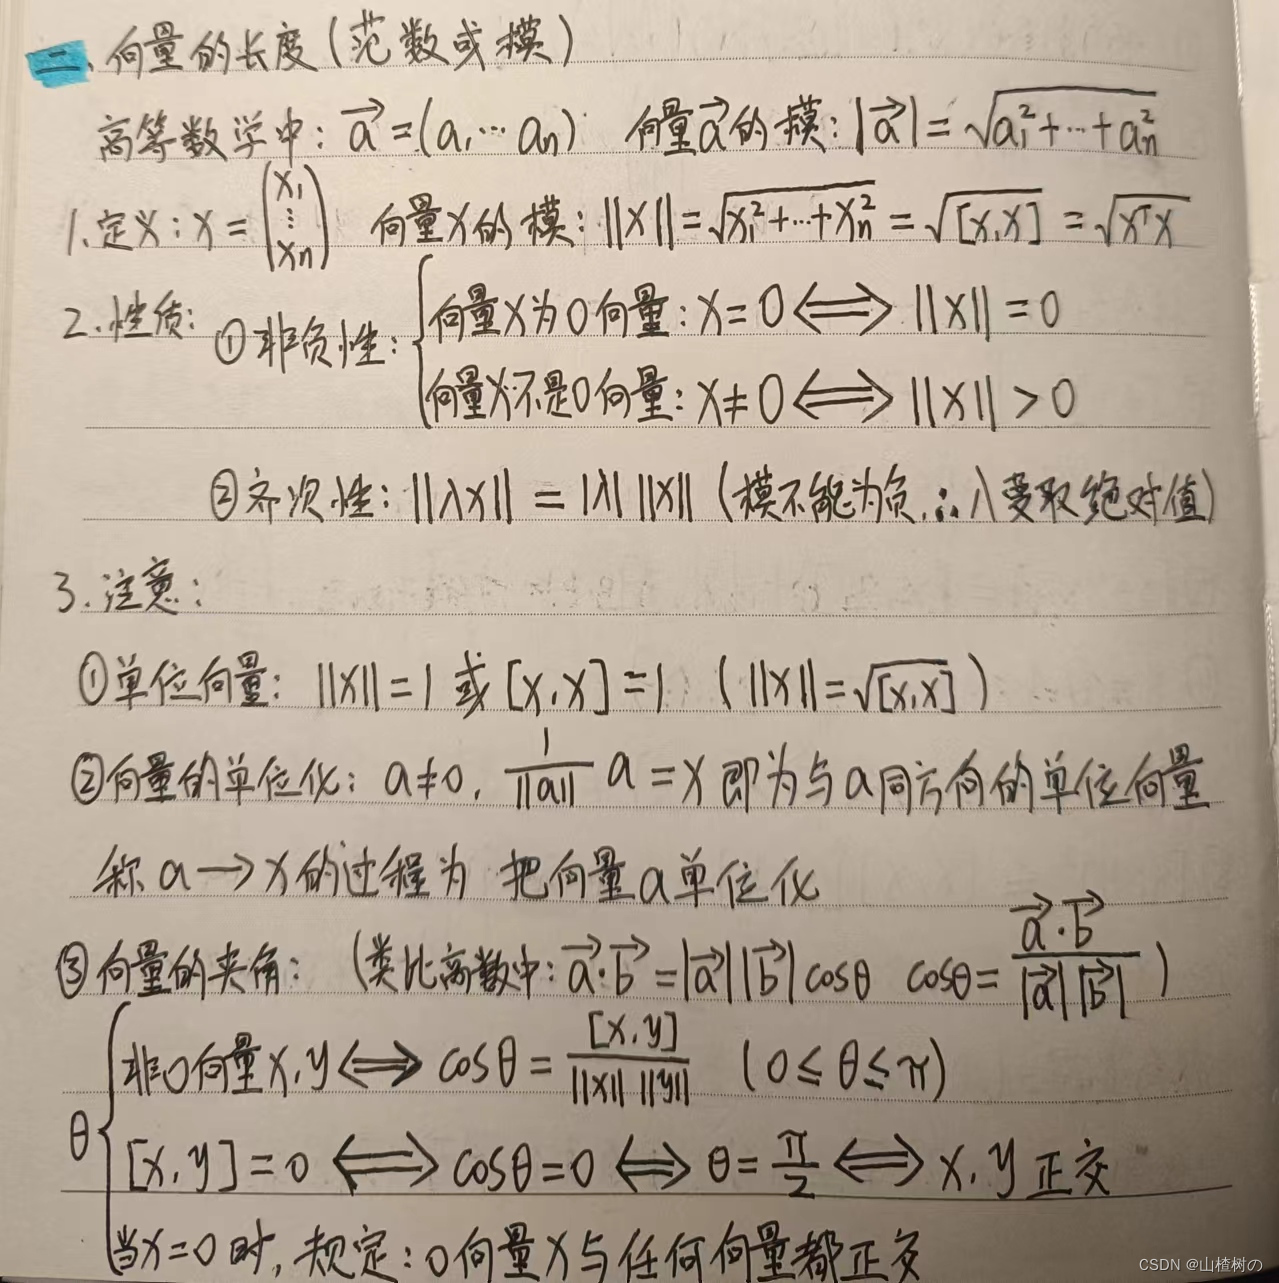 二、向量的长度(范数或模)
高等数学中: a⃗=(a₁…aₙ) 向量a⃗的模: |a⃗|=√(a₁²+…+aₙ²)
1.定义: x=(x₁ ⋮ xₙ) 向量x的模: ||x||=√(x₁²+…+xₙ²)=√[x,x]=√(xᵀx)
2.性质: ①非负性: {向量x为0向量: x=0⟺||x||=0
向量x不是0向量: x≠0⟺||x||>0
②齐次性: ||λx||=|λ| ||x|| (模不能为负,∴λ要取绝对值)
3.注意:
①单位向量: ||x||=1 或 [x,x]=1 (||x||=√[x,x])
②向量的单位化: a≠0, 1/||a|| a=x 即为与a同方向的单位向量
称 a→x的过程为 把向量a单位化
③向量的夹角: (类比高数中: a⃗·b⃗=|a⃗||b⃗|cosθ cosθ=a⃗·b⃗/|a⃗||b⃗|)
θ{非0向量x,y⟺cosθ=[x,y]/||x|| ||y|| (0≤θ≤π)
[x,y]=0⟺cosθ=0⟺θ=π/2⟺x,y正交
当x=0时,规定:0向量x与任何向量都正交
CSDN @山楂树の